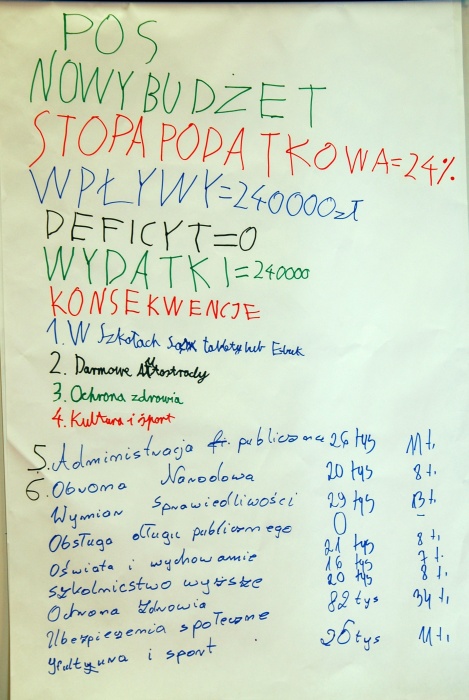 POS
NOWY BUDŻET
STOPA PODATKOWA=24%
WPŁYWY=240000zł
DEFICYT=0
WYDATKI=240000
KONSEKWENCJE
1. W Szkołach są tablety lub
2. Darmowe Autostrady
3. Ochrona zdrowia
4. Kultura i sport
5. Administracja publiczna 26 tys 11 t.
6. Obrona Narodowa 20 tys 8 t.
Wymiar sprawiedliwości 29 tys 13 t.
Obsługa długu publicznego 0 –
Oświata i wychowanie 21 tys 8 t.
szkolnictwo wyższe 16 tys 7 t.
Ochrona Zdrowia 20 tys 8 t.
Ubezpieczenia społeczne 82 tys 34 t.
i sport 26 tys 11 t.